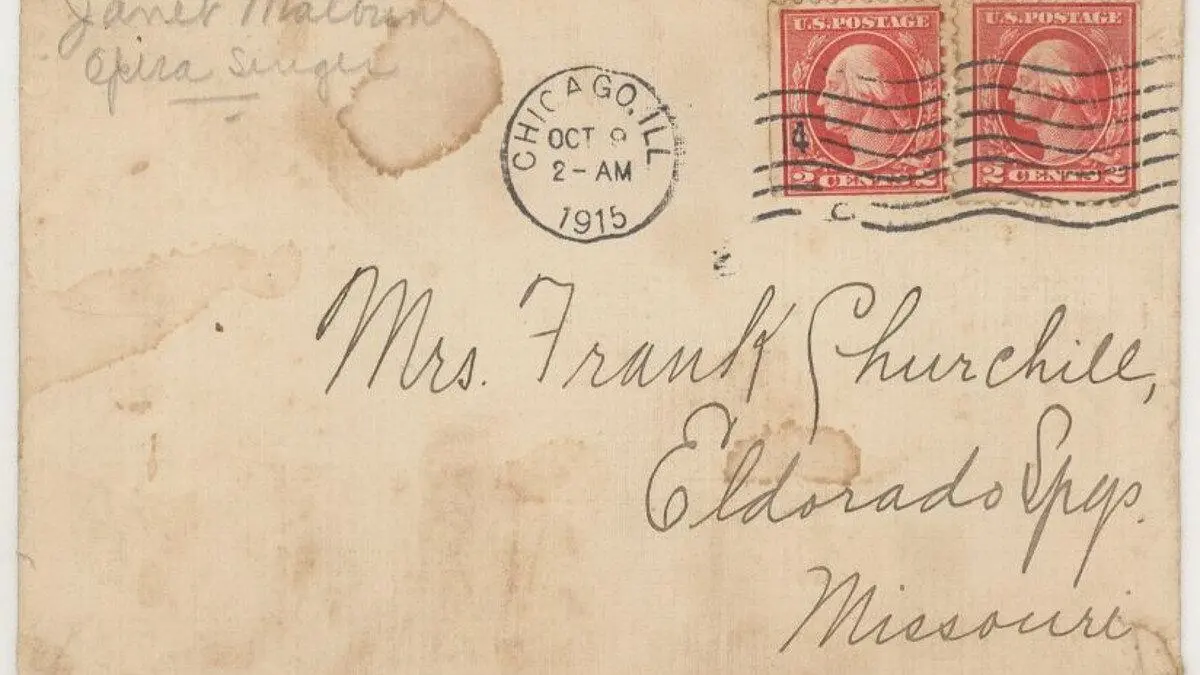 Janet Malbun
Opera Singer
CHICAGO, ILL
OCT 9
2-AM
1915
U.S. POSTAGE
2 CENTS 2
U.S. POSTAGE
2 CENTS 2
4
Mrs. Frank Churchill,
Eldorado Spgs.
Missouri